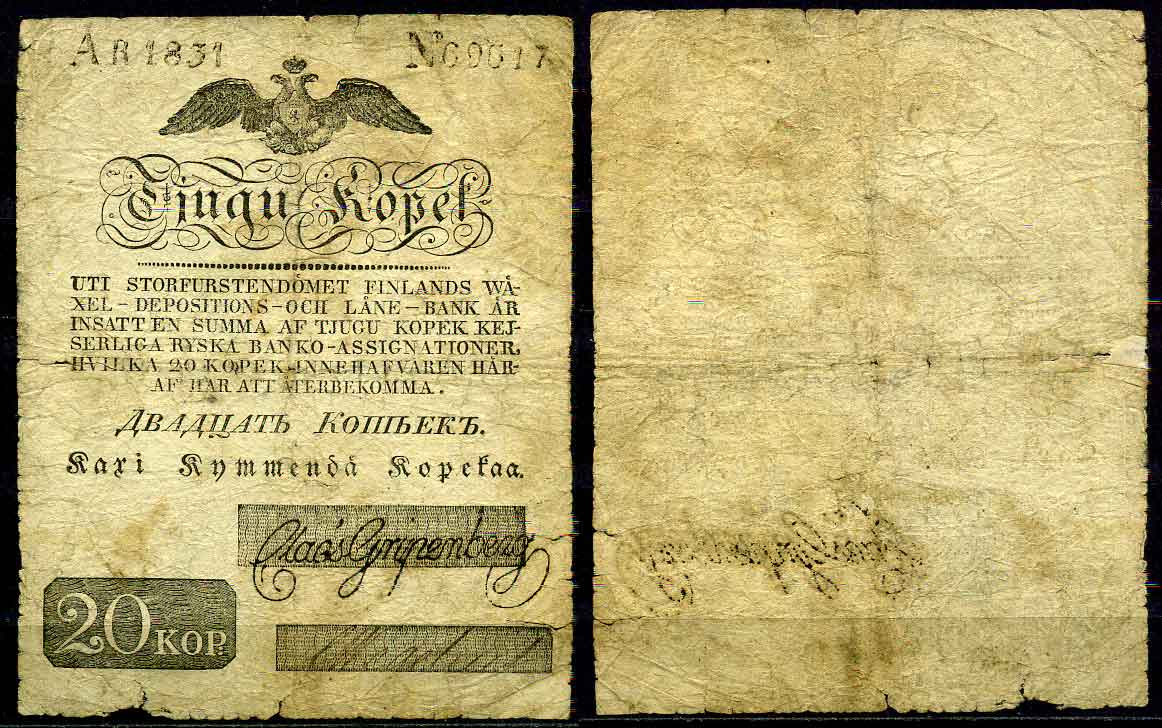 AR 1831 No 69617
Tjugu Kopek
UTI STORFURSTENDÖMET FINLANDS WÄ-
XEL-DEPOSITIONS-OCH LÅNE-BANK ÄR
INSATT EN SUMMA AF TJUGU KOPEK KEJ-
SERLIGA RYSKA BANKO-ASSIGNATIONER,
HVILKA 20 KOPEK INNEHAFVAREN HÄR-
AF HAR ATT ÅTERBEKOMMA.
ДВАДЦАТЬ КОПѢЕКЪ.
Kaxi Kymmendä Kopekaa.
Claës Gripenberg
20 KOP.